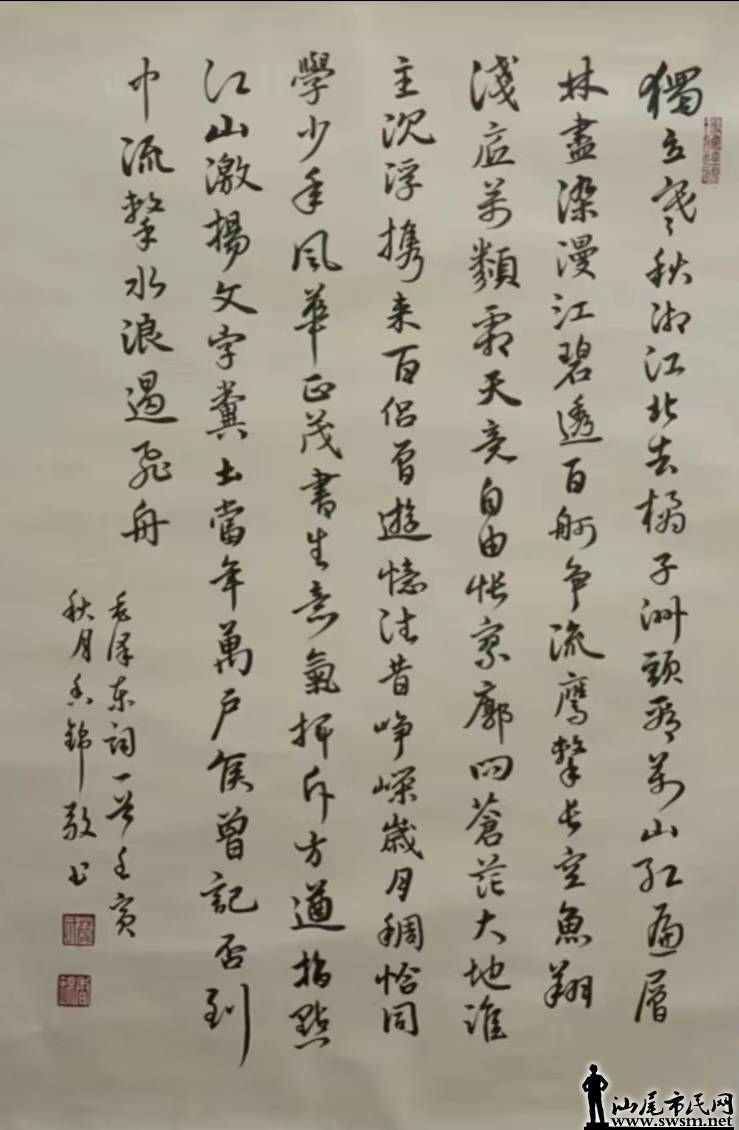 獨立寒秋湘江北去橘子洲頭看万山红遍層
林盡染漫江碧透百舸争流鹰擊长空魚翔
淺底万類霜天竞自由悵寥廓问蒼茫大地谁
主沉浮攜来百侣曾遊憶往昔崢嶸歲月稠恰同
學少年風華正茂書生意氣揮斥方遒指點
江山激揚文字糞土當年萬户侯曾記否到
中流擊水浪遏飛舟
毛泽东词一首壬寅
秋月 錦敬书
汕尾市民网
www.swsm.net